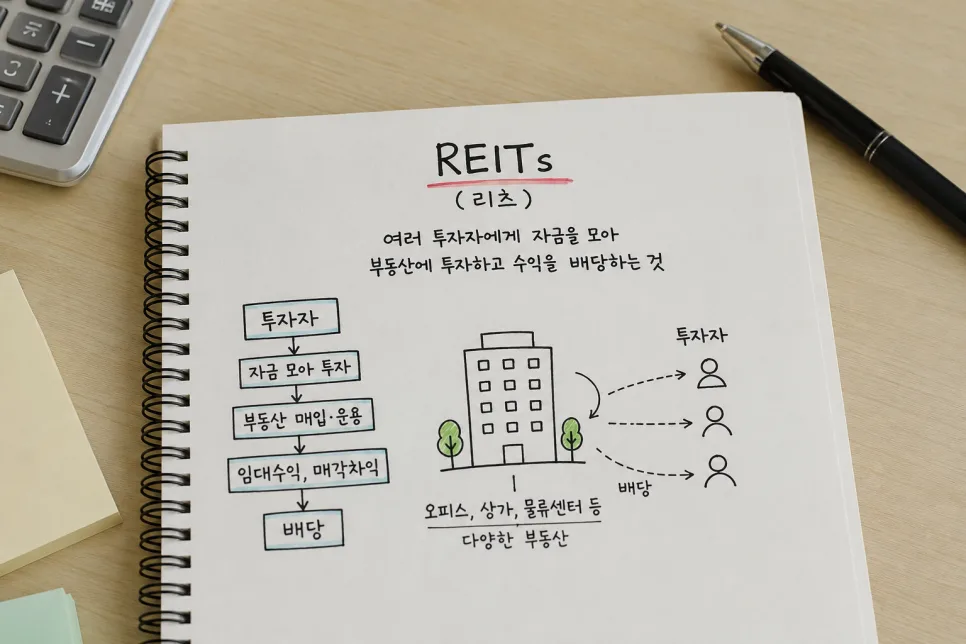 REITs
(리츠)
여러 투자자에게 자금을 모아
부동산에 투자하고 수익을 배당하는 것
투자자
자금 모아 투자
부동산 매입·운용
임대수익, 매각차익
배당
오피스, 상가, 물류센터 등
다양한 부동산
투자자
배당